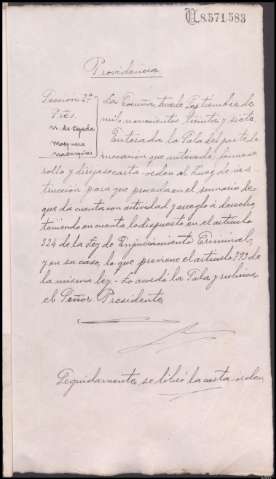 N.8.571.583
Providencia
Seccion 2ª
Sres.
La Coruña, trece de Septiembre de
mil novecientos treinta y siete.
Enterada la Sala del parte te
que antecede, forme
rollo y dirijase carta orden al Juez de ins-
truccion para que proceda en el sumario de
que da cuenta con actividad y arreglo a derecho,
teniendo en cuenta lo dispuesto en el artículo
324 de la Ley de Enjuiciamiento Criminal,
y en su caso, lo que previene el artículo
la misma ley. Lo acordó la Sala y rubrica
el Señor Presidente
Seguidamente se libró la carta orden